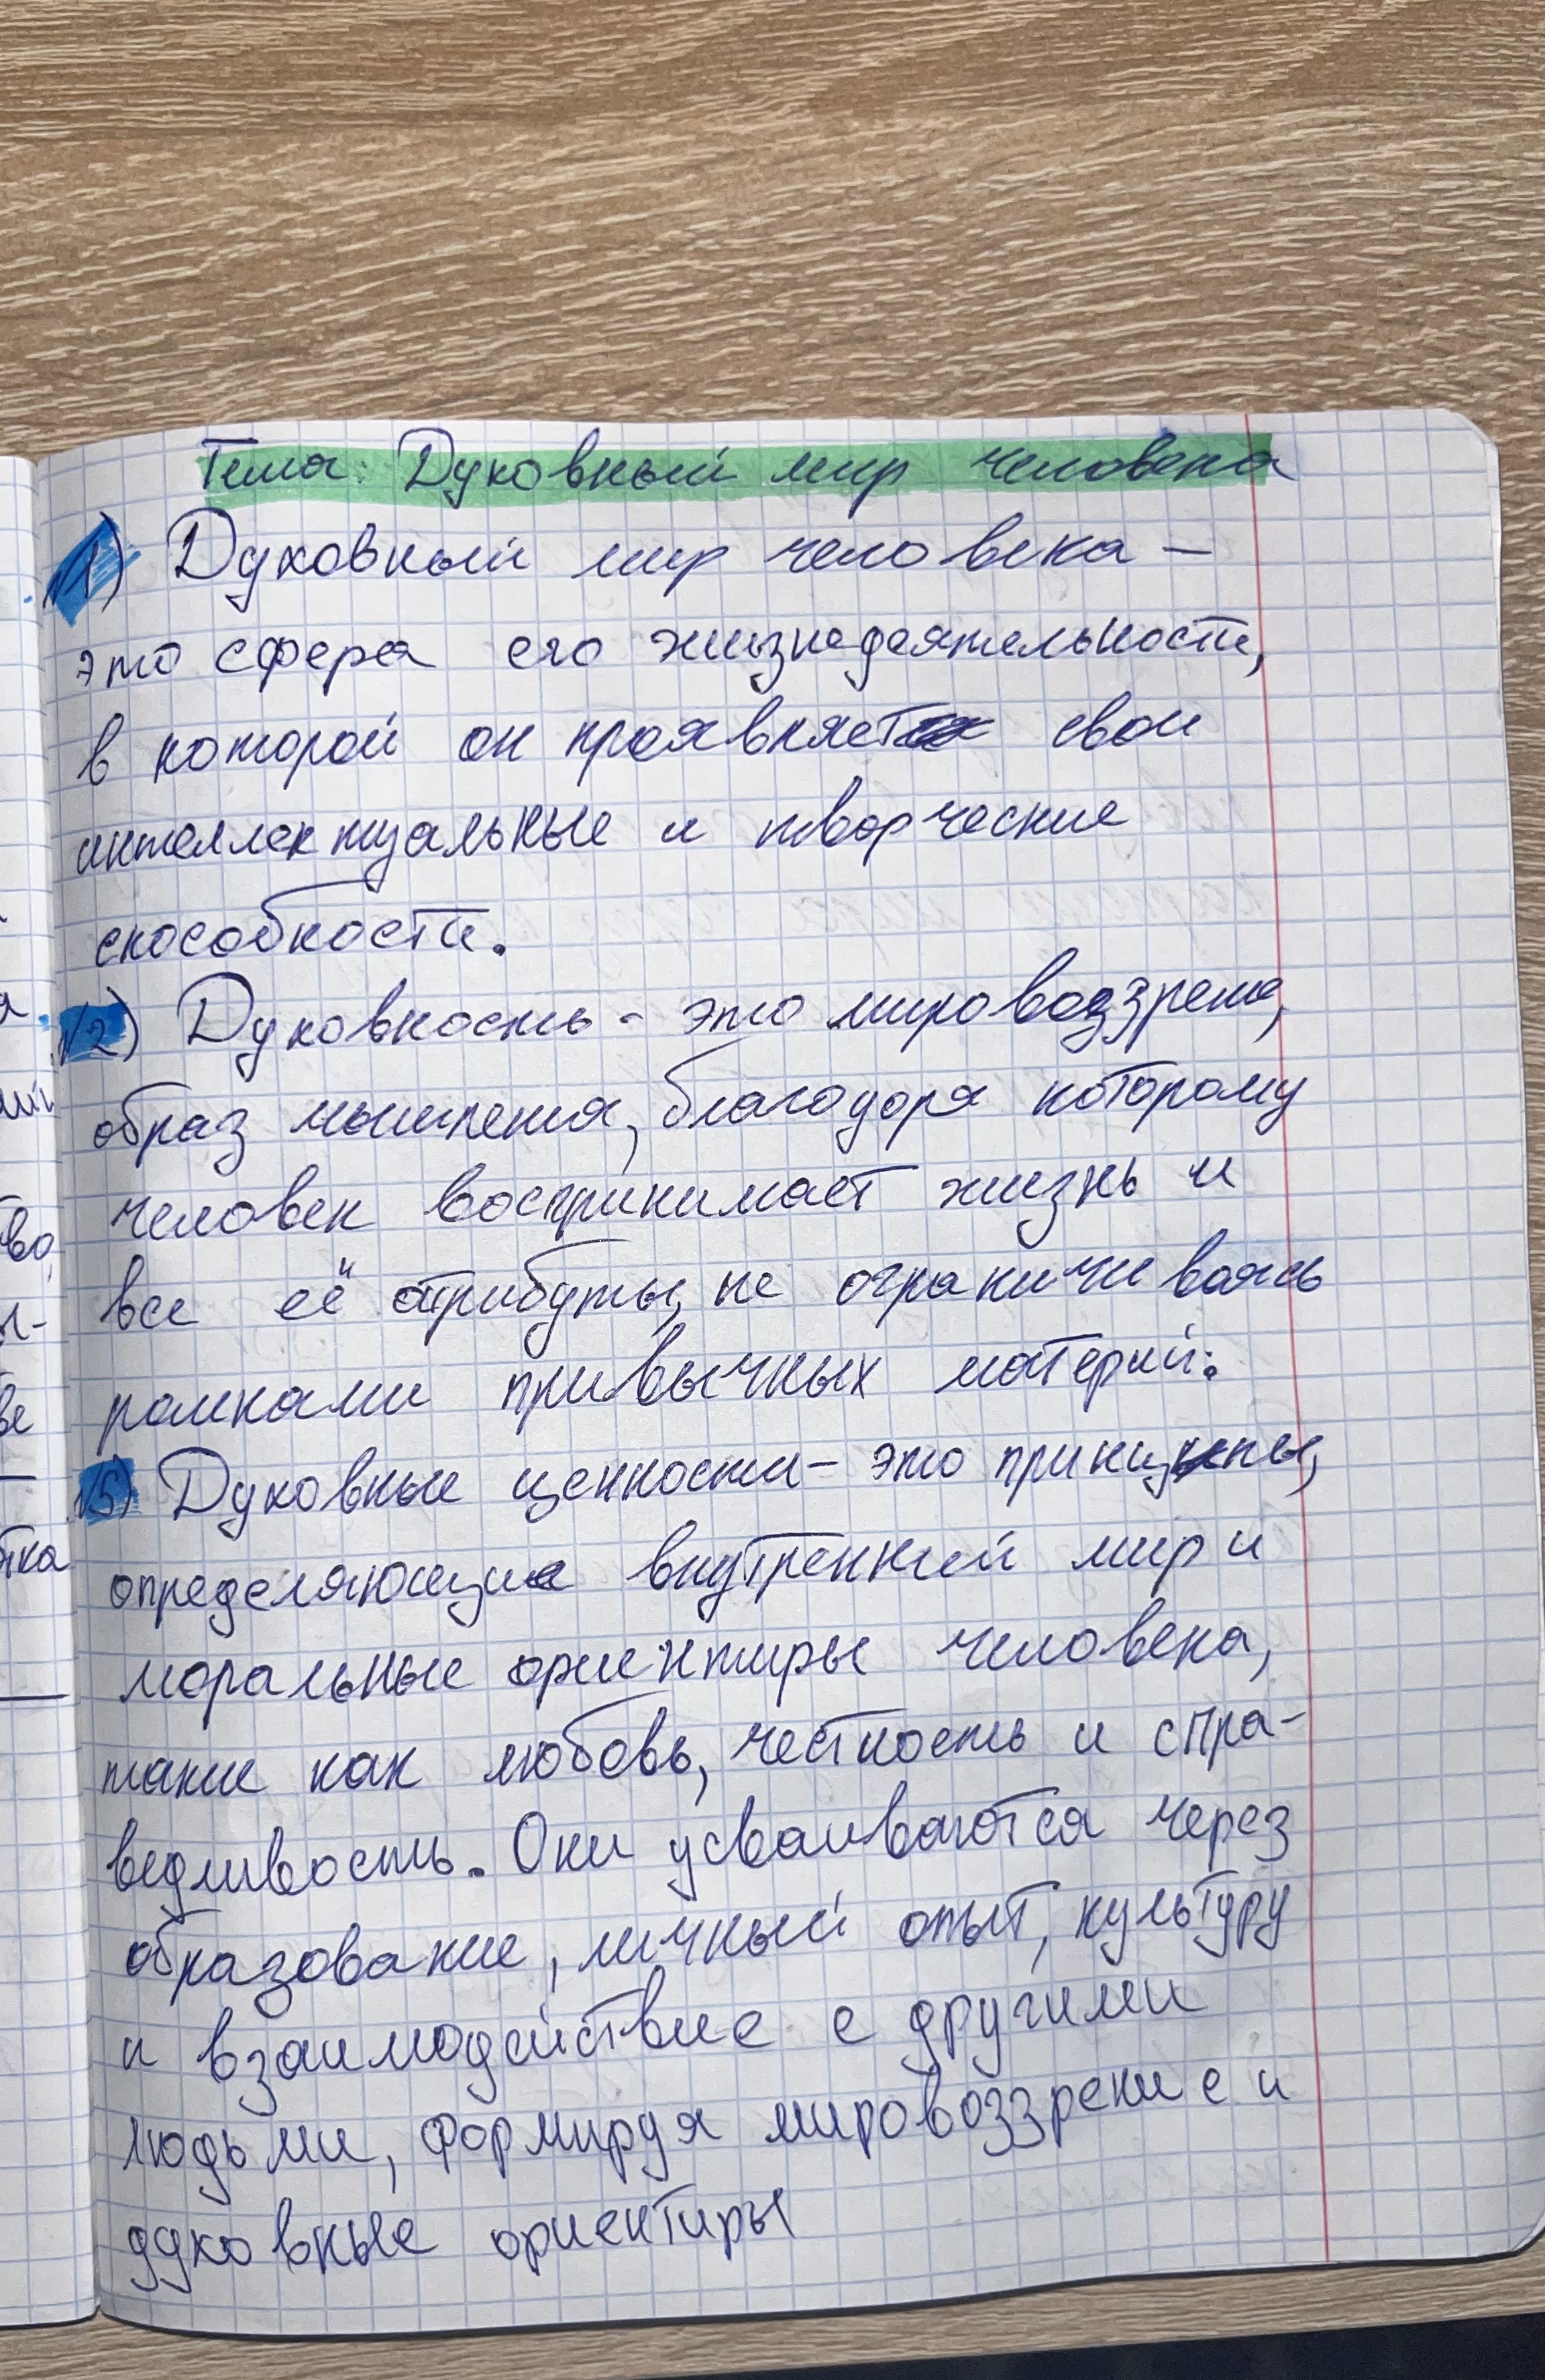 Тема: Духовный мир человека
1) Духовный мир человека –
это сфера его жизнедеятельности,
в которой он проявляет свои
интеллектуальные и творческие
способности.
2) Духовность - это мировоззрение,
образ мышления, благодоря которому
человек воспринимает жизнь и
все её атрибуты, не ограничиваясь
рамками привычных материй.
Духовные ценности – это принципы,
определяющие внутренний мир и
моральные ориентиры человека,
такие как любовь, честность и спра-
ведливость. Они усваиваются через
образование, личный опыт, культуру
и взаимодействие с другими
людьми, формируя мировоззрение и
духовные ориентиры